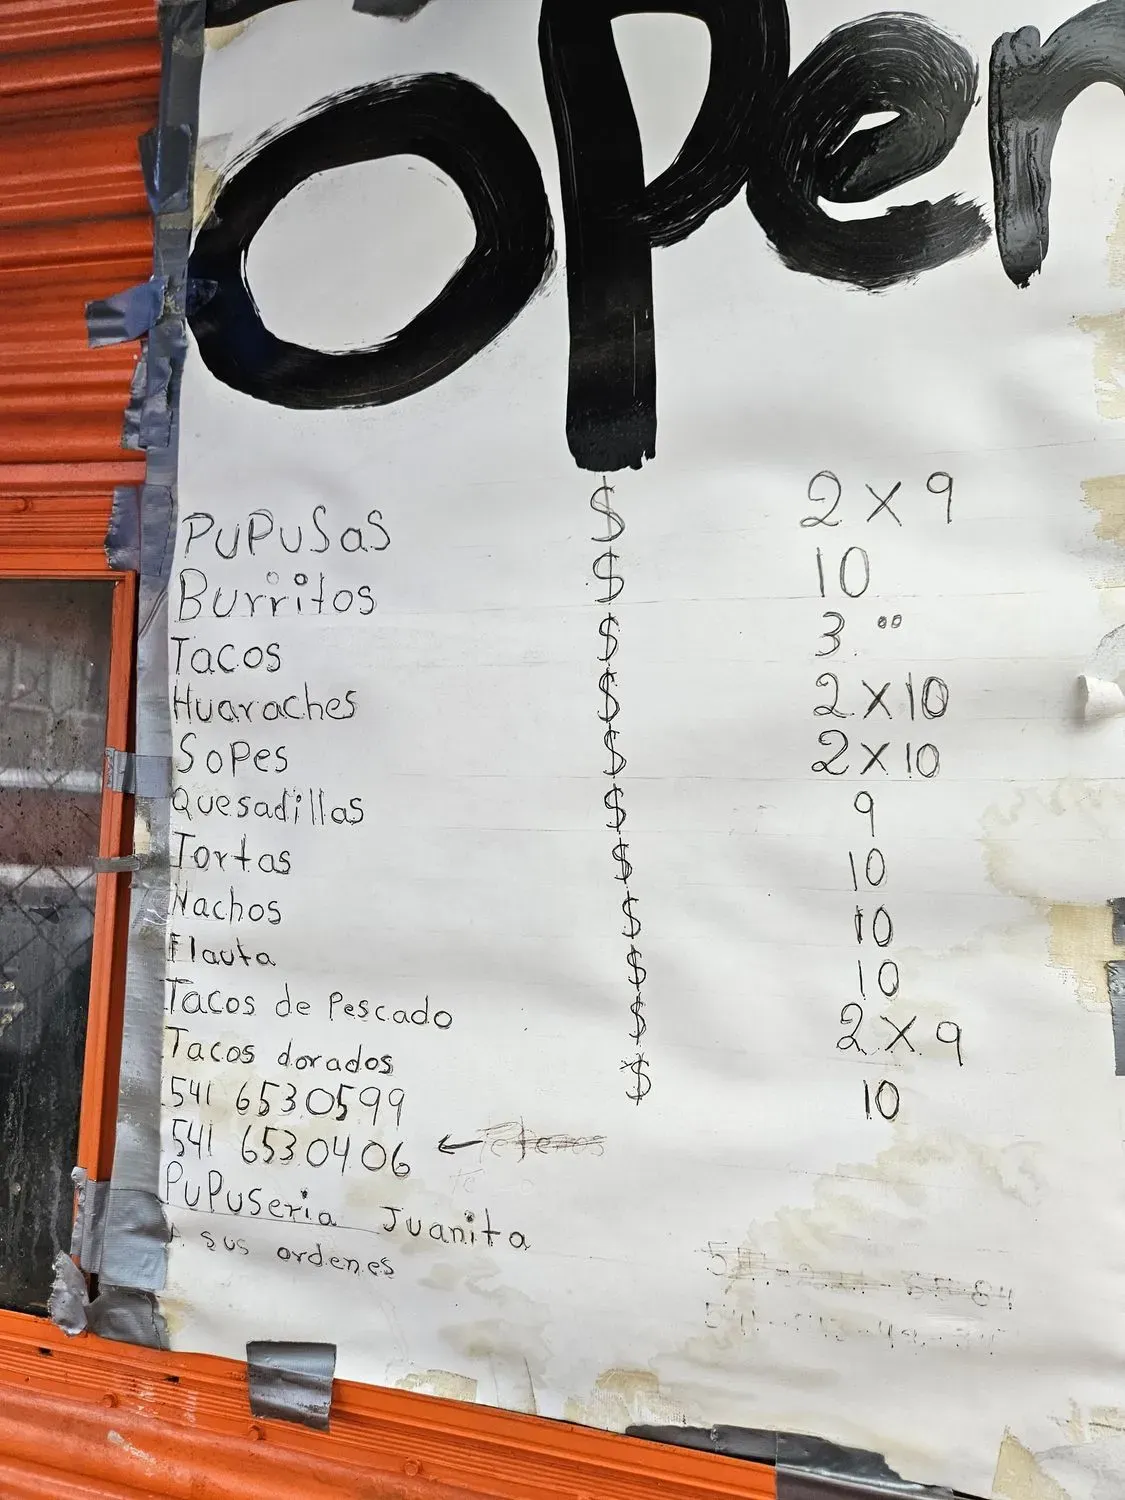 open
PUPUSas $ 2 x 9
Burritos $ 10
Tacos $ 3.00
Huaraches $ 2 x 10
Sopes $ 2 x 10
Quesadillas $ 9
Tortas $ 10
Nachos $ 10
Flauta $ 10
Tacos de Pescado $ 2 x 9
Tacos dorados $ 10
541 6530599
541 6530406 ←
PuPuseria Juanita
A sus ordenes